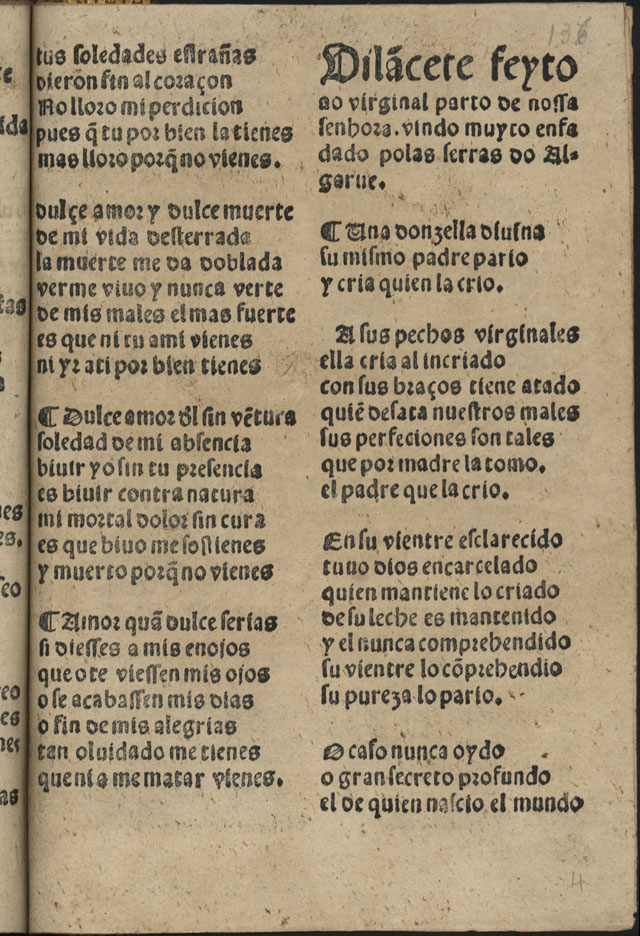 136
tus soledades estrañas
dieron fin al coraçon
No lloro mi perdicion
pues q̃ tu por bien la tienes
mas lloro porq̃ no vienes.
dulçe amor y dulce muerte
de mi vida desterrada
la muerte me da doblada
verme viuo y nunca verte
de mis males el mas fuerte
es que ni tu ami vienes
ni yr ati por bien tienes
¶ Dulce amor đl sin vẽtura
soledad de mi absencia
biuir yo sin tu presencia
es biuir contra natura
mi mortal dolor sin cura
es que biuo me sostienes
y muerto porq̃ no vienes
¶ Amor quã dulce serias
si diesses a mis enojos
que o te viessen mis ojos
o se acabassen mis dias
o fin de mis alegrias
tan oluidado me tienes
que ni a me matar vienes.
Vilãcete feyto
ao virginal parto de nossa
senhora. vindo muyto enfa
dado polas serras do Al-
garue.
¶ Una donzella diuina
su mismo padre pario
y cria quien la crio.
A sus pechos virginales
ella cria al incriado
con sus braços tiene atado
quiẽ desata nuestros males
sus perfeciones son tales
que por madre la tomo.
el padre que la crio.
En su vientre esclarecido
tuuo dios encarcelado
quien mantiene lo criado
de su leche es mantenido
y el nunca comprehendido
su vientre lo cõprehendio
su pureza lo pario.
O caso nunca oydo
o gran secreto profundo
el de quien nascio el mundo
4